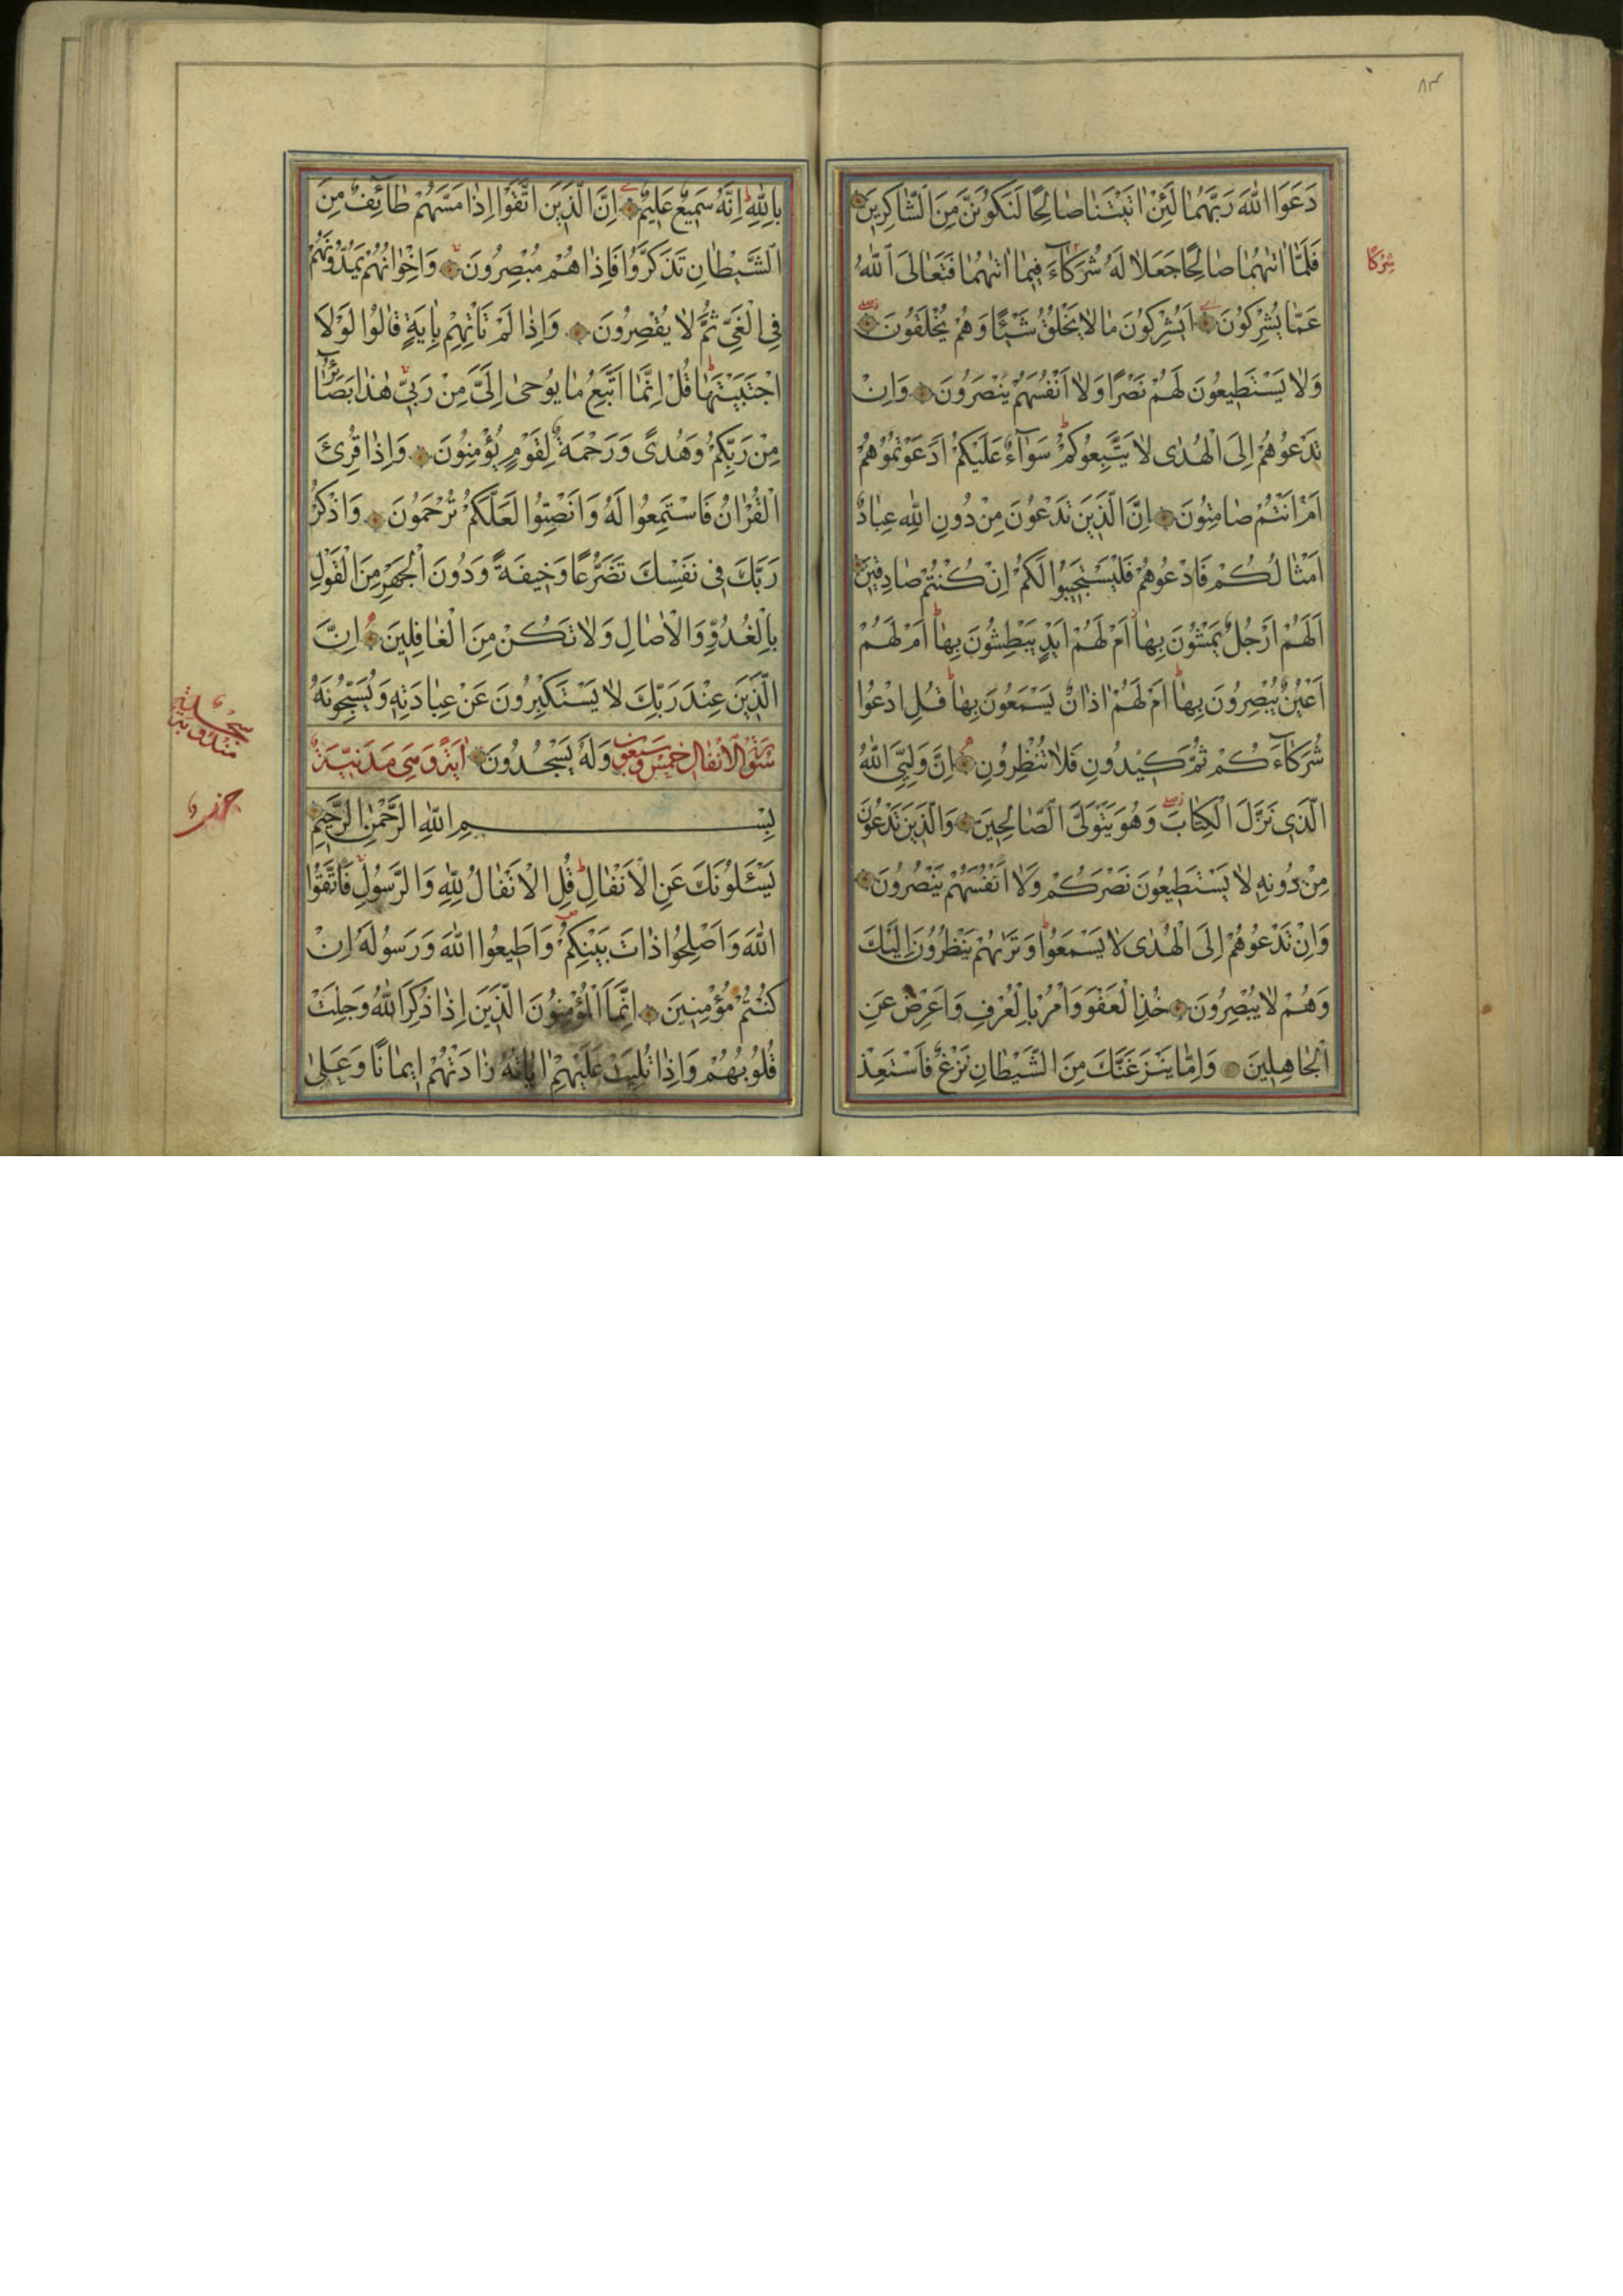 ٨٣
دَعَوَا اللّٰهَ رَبَّهُمَا لَئِنْ اٰتَيْتَنَا صَالِحًا لَنَكُونَنَّ مِنَ الشَّاكِرِينَ
فَلَمَّا اٰتٰيهُمَا صَالِحًا جَعَلَا لَهُ شُرَكَآءَ فِيمَا اٰتٰيهُمَا فَتَعَالَى اللّٰهُ
شِرْكًا
عَمَّا يُشْرِكُونَ اَيُشْرِكُونَ مَا لَا يَخْلُقُ شَيْئًا وَهُمْ يُخْلَقُونَ
وَلَا يَسْتَطِيعُونَ لَهُمْ نَصْرًا وَلَا اَنْفُسَهُمْ يَنْصُرُونَ وَاِنْ
تَدْعُوهُمْ اِلَى الْهُدٰى لَا يَتَّبِعُوكُمْ سَوَآءٌ عَلَيْكُمْ اَدَعَوْتُمُوهُمْ
اَمْ اَنْتُمْ صَامِتُونَ اِنَّ الَّذِينَ تَدْعُونَ مِنْ دُونِ اللّٰهِ عِبَادٌ
اَمْثَالُكُمْ فَادْعُوهُمْ فَلْيَسْتَجِيبُوا لَكُمْ اِنْ كُنْتُمْ صَادِقِينَ
اَلَهُمْ اَرْجُلٌ يَمْشُونَ بِهَا اَمْ لَهُمْ اَيْدٍ يَبْطِشُونَ بِهَا اَمْ لَهُمْ
اَعْيُنٌ يُبْصِرُونَ بِهَا اَمْ لَهُمْ اٰذَانٌ يَسْمَعُونَ بِهَا قُلِ ادْعُوا
شُرَكَآءَكُمْ ثُمَّ كِيدُونِ فَلَا تُنْظِرُونِ اِنَّ وَلِيِّيَ اللّٰهُ
الَّذِى نَزَّلَ الْكِتَابَ وَهُوَ يَتَوَلَّى الصَّالِحِينَ وَالَّذِينَ تَدْعُونَ
مِنْ دُونِهِ لَا يَسْتَطِيعُونَ نَصْرَكُمْ وَلَا اَنْفُسَهُمْ يَنْصُرُونَ
وَاِنْ تَدْعُوهُمْ اِلَى الْهُدٰى لَا يَسْمَعُوا وَتَرٰيهُمْ يَنْظُرُونَ اِلَيْكَ
وَهُمْ لَا يُبْصِرُونَ خُذِ الْعَفْوَ وَاْمُرْ بِالْعُرْفِ وَاَعْرِضْ عَنِ
الْجَاهِلِينَ وَاِمَّا يَنْزَغَنَّكَ مِنَ الشَّيْطَانِ نَزْغٌ فَاسْتَعِذْ
بِاللّٰهِ اِنَّهُ سَمِيعٌ عَلِيمٌ اِنَّ الَّذِينَ اتَّقَوْا اِذَا مَسَّهُمْ طَآئِفٌ مِنَ
الشَّيْطَانِ تَذَكَّرُوا فَاِذَا هُمْ مُبْصِرُونَ وَاِخْوَانُهُمْ يَمُدُّونَهُمْ
فِى الْغَىِّ ثُمَّ لَا يُقْصِرُونَ وَاِذَا لَمْ تَاْتِهِمْ بِاٰيَةٍ قَالُوا لَوْلَا
اجْتَبَيْتَهَا قُلْ اِنَّمَا اَتَّبِعُ مَا يُوحٰى اِلَىَّ مِنْ رَبِّى هٰذَا بَصَآئِرُ
مِنْ رَبِّكُمْ وَهُدًى وَرَحْمَةٌ لِقَوْمٍ يُؤْمِنُونَ وَاِذَا قُرِئَ
الْقُرْاٰنُ فَاسْتَمِعُوا لَهُ وَاَنْصِتُوا لَعَلَّكُمْ تُرْحَمُونَ وَاذْكُرْ
رَبَّكَ فِى نَفْسِكَ تَضَرُّعًا وَخِيفَةً وَدُونَ الْجَهْرِ مِنَ الْقَوْلِ
بِالْغُدُوِّ وَالْاٰصَالِ وَلَا تَكُنْ مِنَ الْغَافِلِينَ اِنَّ
الَّذِينَ عِنْدَ رَبِّكَ لَا يَسْتَكْبِرُونَ عَنْ عِبَادَتِهِ وَيُسَبِّحُونَهُ
سُورَةُ الْاَنْفَالِ خَمْسٌ وَسَبْعُونَ وَلَهُ يَسْجُدُونَ اٰيَةً وَهِىَ مَدَنِيَّةٌ
بِسْمِ اللّٰهِ الرَّحْمٰنِ الرَّحِيمِ
يَسْئَلُونَكَ عَنِ الْاَنْفَالِ قُلِ الْاَنْفَالُ لِلّٰهِ وَالرَّسُولِ فَاتَّقُوا
اللّٰهَ وَاَصْلِحُوا ذَاتَ بَيْنِكُمْ وَاَطِيعُوا اللّٰهَ وَرَسُولَهُ اِنْ
كُنْتُمْ مُؤْمِنِينَ اِنَّمَا الْمُؤْمِنُونَ الَّذِينَ اِذَا ذُكِرَ اللّٰهُ وَجِلَتْ
قُلُوبُهُمْ وَاِذَا تُلِيَتْ عَلَيْهِمْ اٰيَاتُهُ زَادَتْهُمْ اِيمَانًا وَعَلٰى
سجدة
مندوبة
حزب